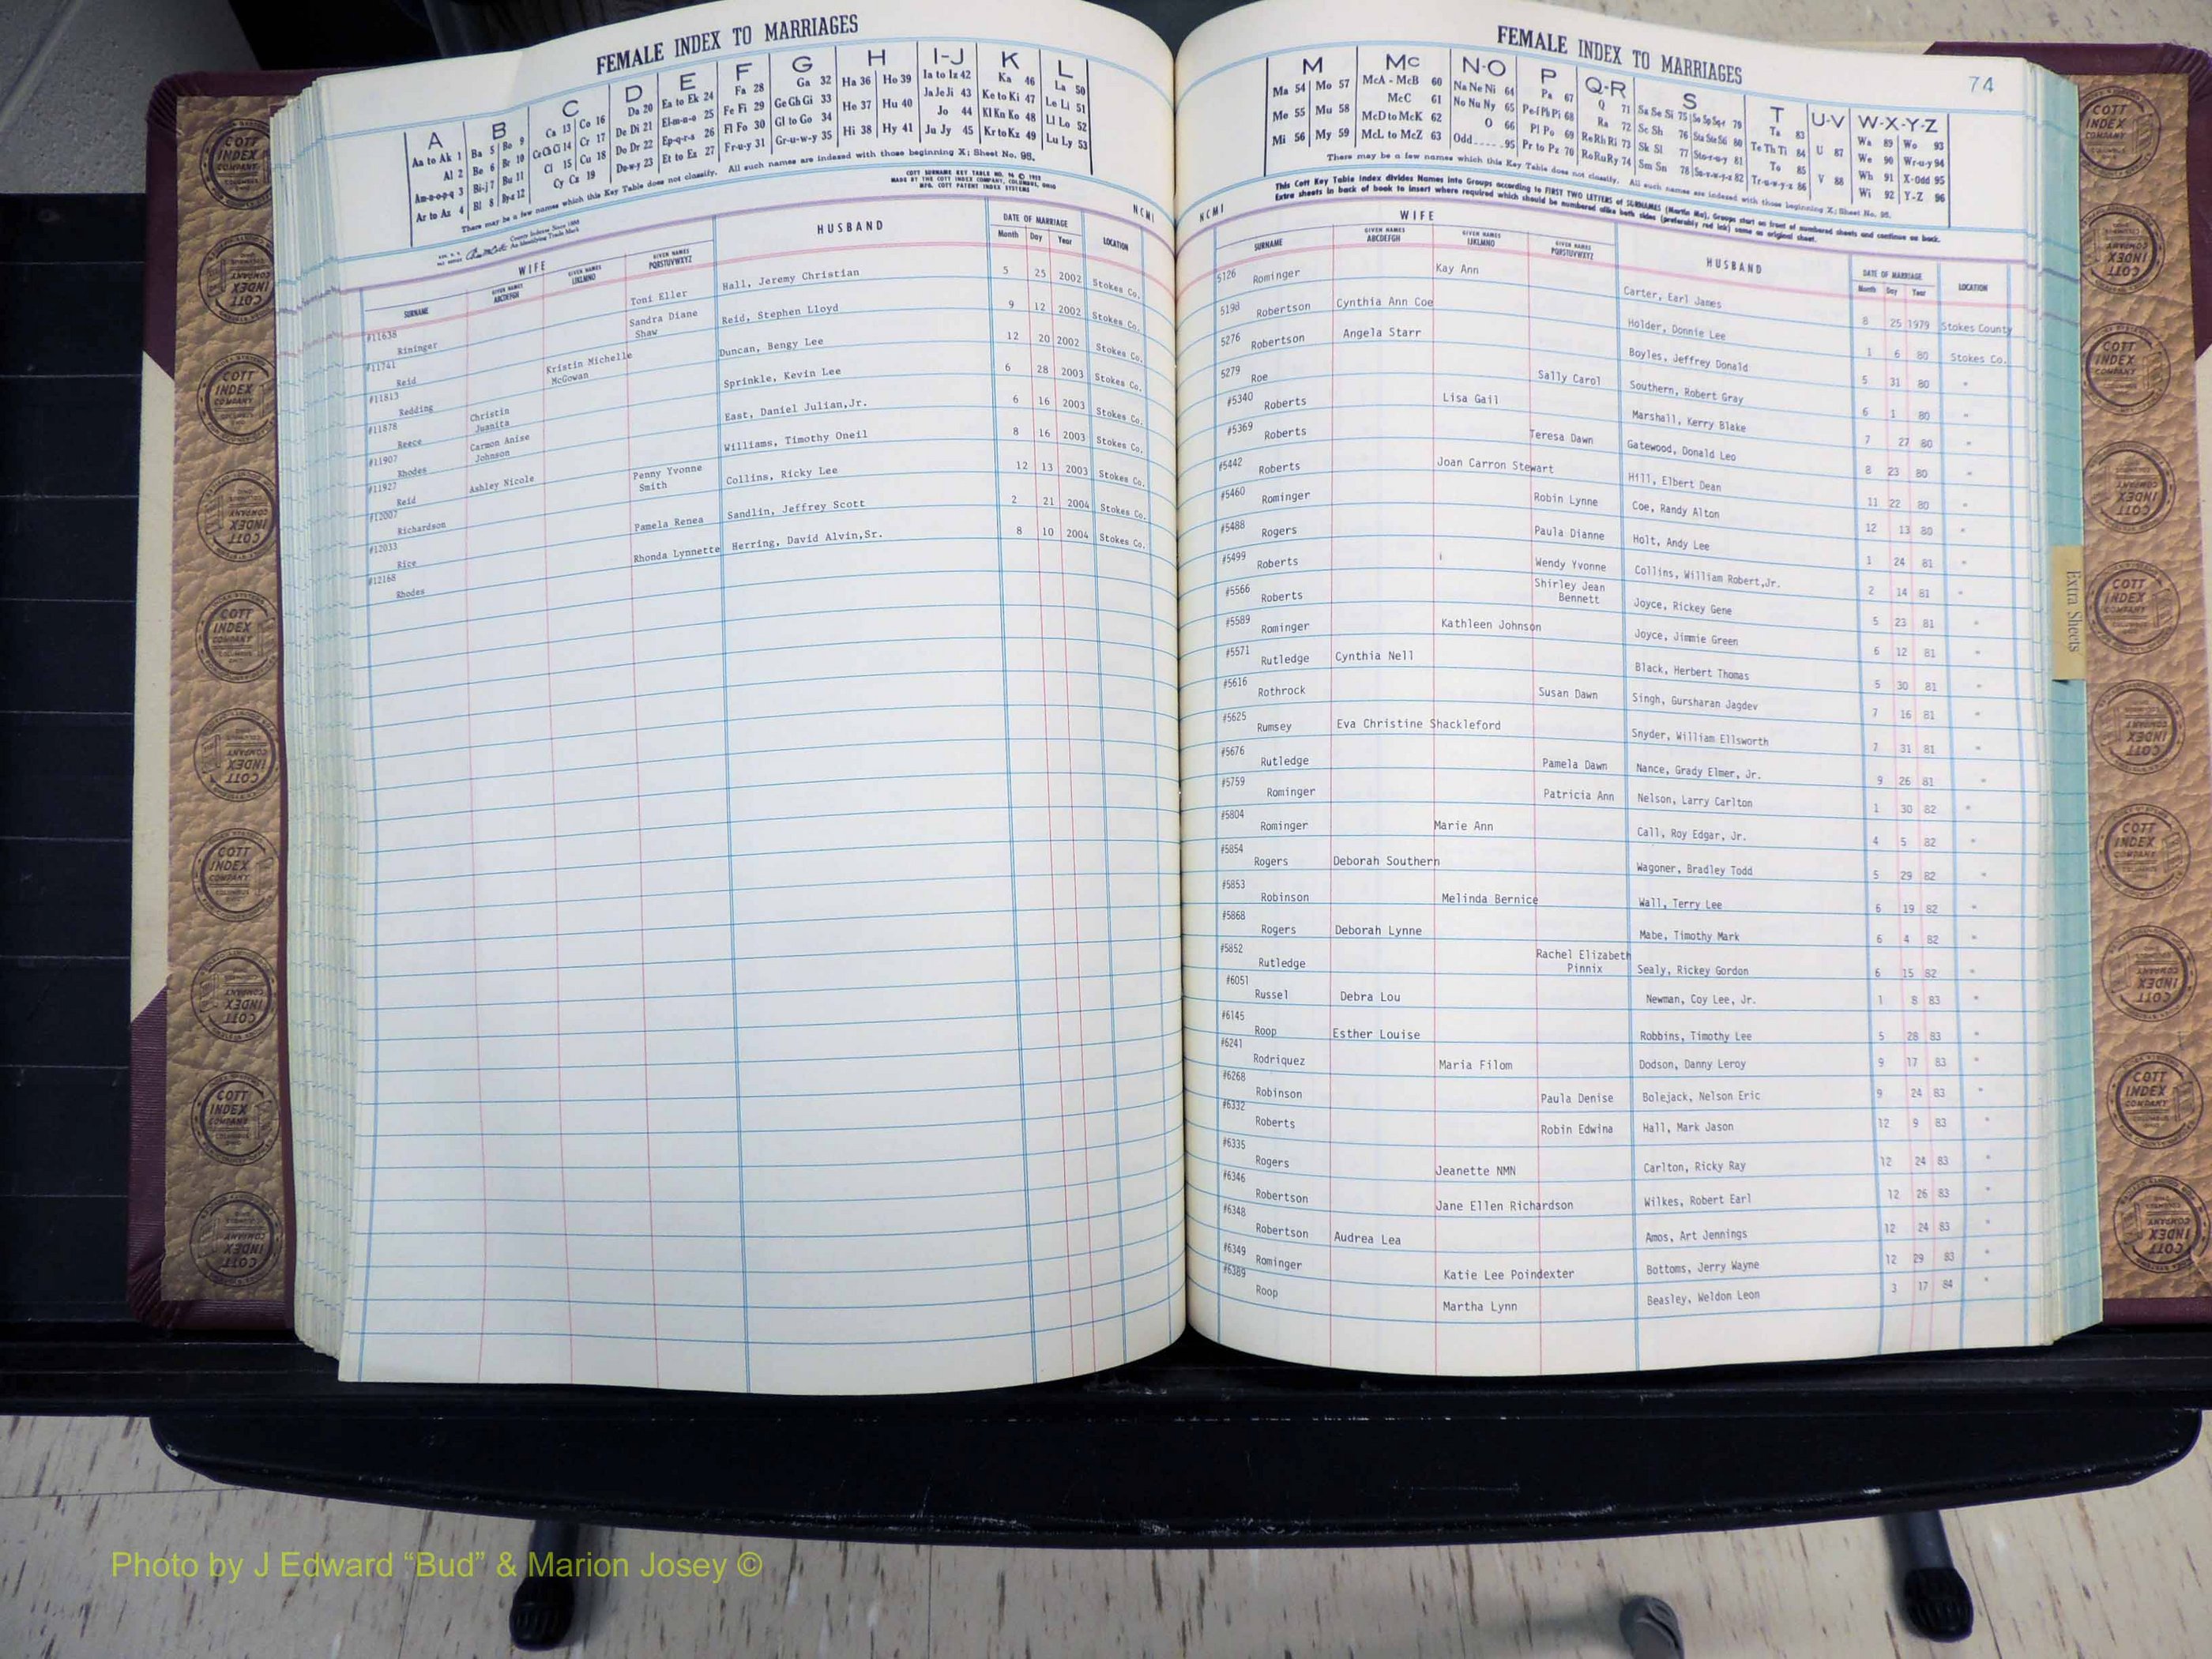 FEMALE INDEX TO MARRIAGES
A B C D E F G H I-J K L
Aa to Ak 1 Ba 5 Bo 9 Ca 13 Co 16 Da 20 Ea to Ek 24 Fa 28 Ga 32 Ha 36 Ho 39 Ia to Iz 42 Ka 46 La 50
Al 2 Be 6 Br 10 Ce Ch Ci 14 Cr 17 De Di 21 El-m-n-o 25 Fe Fi 29 Ge Gh Gi 33 He 37 Hu 40 Ja Je Ji 43 Ke to Ki 47 Le Li 51
Am-n-o-p-q 3 Bi-j 7 Bu 11 Cl 15 Cu 18 Do Dr 22 Ep-q-r-s 26 Fl Fo 30 Gl to Go 34 Hi 38 Hy 41 Jo 44 Kl Kn Ko 48 Ll Lo 52
Ar to Az 4 Bl 8 By-z 12 Cy Cz 19 Du-w-y 23 Et to Ez 27 Fr-u-y 31 Gr-u-w-y 35 Ju Jy 45 Kr to Kz 49 Lu Ly 53
There may be a few names which this Key Table does not classify. All such names are indexed with those beginning X; Sheet No. 95.
COTT SURNAME KEY TABLE NO. 96 © 1952
MADE BY THE COTT INDEX COMPANY, COLUMBUS, OHIO
MFG. COTT PATENT INDEX SYSTEMS
County Indexes Since 1888
An Identifying Trade Mark
NCMI
WIFE HUSBAND DATE OF MARRIAGE LOCATION
SURNAME GIVEN NAMES ABCDEFGH GIVEN NAMES IJKLMNO GIVEN NAMES PQRSTUVWXYZ Month Day Year
#11638 Rininger Toni Eller Hall, Jeremy Christian 5 25 2002 Stokes Co.
#11741 Reid Sandra Diane Shaw Reid, Stephen Lloyd 9 12 2002 Stokes Co.
#11813 Redding Kristin Michelle McGowan Duncan, Bengy Lee 12 20 2002 Stokes Co.
#11878 Reece Christin Juanita Sprinkle, Kevin Lee 6 28 2003 Stokes Co.
#11907 Rhodes Carmon Anise Johnson East, Daniel Julian,Jr. 6 16 2003 Stokes Co.
#11927 Reid Ashley Nicole Williams, Timothy Oneil 8 16 2003 Stokes Co.
#12007 Richardson Penny Yvonne Smith Collins, Ricky Lee 12 13 2003 Stokes Co.
#12033 Rice Pamela Renea Sandlin, Jeffrey Scott 2 21 2004 Stokes Co.
#12168 Rhodes Rhonda Lynnette Herring, David Alvin,Sr. 8 10 2004 Stokes Co.
FEMALE INDEX TO MARRIAGES
74
M Mc N-O P Q-R S T U-V W-X-Y-Z
Ma 54 Mo 57 McA - McB 60 Na Ne Ni 64 Pa 67 Q 71 Sa Se Si 75 79 Ta 83 Wa 89 Wo 93
Me 55 Mu 58 McC 61 No Nu Ny 65 Pe-f Ph Pi 68 Ra 72 Sc Sh 76 Sta Ste St 80 Te Th Ti 84 U 87 We 90 Wr-u-y 94
Mi 56 My 59 McD to McK 62 O 66 Pl Po 69 Re Rh Ri 73 Sk Sl 77 Sto-r-u-y 81 To 85 V 88 Wh 91 X-Odd 95
McL to McZ 63 Odd.....95 Pr to Pz 70 Ro Ru Ry 74 Sm Sn 78 Su-v-w-y-z 82 Tr-u-w-y-z 86 Wi 92 Y-Z 96
There may be a few names which this Key Table does not classify. All such names are indexed with those beginning X; Sheet No. 95.
This Cott Key Table Index divides Names into Groups according to FIRST TWO LETTERS of SURNAMES (Martin Ma), Groups start on front of numbered sheets and continue on back.
Extra sheets in back of book to insert where required which should be numbered alike both sides (preferably red ink) same as original sheet.
NCMI
WIFE HUSBAND DATE OF MARRIAGE LOCATION
SURNAME GIVEN NAMES ABCDEFGH GIVEN NAMES IJKLMNO GIVEN NAMES PQRSTUVWXYZ Month Day Year
5126 Rominger Kay Ann Carter, Earl James 8 25 1979 Stokes County
5198 Robertson Cynthia Ann Coe Holder, Donnie Lee 1 6 80 Stokes Co.
5276 Robertson Angela Starr Boyles, Jeffrey Donald 5 31 80 "
5279 Roe Sally Carol Southern, Robert Gray 6 1 80 "
#5340 Roberts Lisa Gail Marshall, Kerry Blake 7 27 80 "
#5369 Roberts Teresa Dawn Gatewood, Donald Leo 8 23 80 "
#5442 Roberts Joan Carron Stewart Hill, Elbert Dean 11 22 80 "
#5460 Rominger Robin Lynne Coe, Randy Alton 12 13 80 "
#5488 Rogers Paula Dianne Holt, Andy Lee 1 24 81 "
#5499 Roberts Wendy Yvonne Collins, William Robert,Jr. 2 14 81 "
#5566 Roberts Shirley Jean Bennett Joyce, Rickey Gene 5 23 81 "
#5589 Rominger Kathleen Johnson Joyce, Jimmie Green 6 12 81 "
#5571 Rutledge Cynthia Nell Black, Herbert Thomas 5 30 81 "
#5616 Rothrock Susan Dawn Singh, Gursharan Jagdev 7 16 81 "
#5625 Rumsey Eva Christine Shackleford Snyder, William Ellsworth 7 31 81 "
#5676 Rutledge Pamela Dawn Nance, Grady Elmer, Jr. 9 26 81 "
#5759 Rominger Patricia Ann Nelson, Larry Carlton 1 30 82 "
#5804 Rominger Marie Ann Call, Roy Edgar, Jr. 4 5 82 "
#5854 Rogers Deborah Southern Wagoner, Bradley Todd 5 29 82 "
#5853 Robinson Melinda Bernice Wall, Terry Lee 6 19 82 "
#5868 Rogers Deborah Lynne Mabe, Timothy Mark 6 4 82 "
#5852 Rutledge Rachel Elizabeth Pinnix Sealy, Rickey Gordon 6 15 82 "
#6051 Russel Debra Lou Newman, Coy Lee, Jr. 1 8 83 "
#6145 Roop Esther Louise Robbins, Timothy Lee 5 28 83 "
#6241 Rodriquez Maria Filom Dodson, Danny Leroy 9 17 83 "
#6268 Robinson Paula Denise Bolejack, Nelson Eric 9 24 83 "
#6332 Roberts Robin Edwina Hall, Mark Jason 12 9 83 "
#6335 Rogers Jeanette NMN Carlton, Ricky Ray 12 24 83 "
#6346 Robertson Jane Ellen Richardson Wilkes, Robert Earl 12 26 83 "
#6348 Robertson Audrea Lea Amos, Art Jennings 12 24 83 "
#6349 Rominger Katie Lee Poindexter Bottoms, Jerry Wayne 12 29 83 "
#6389 Roop Martha Lynn Beasley, Weldon Leon 3 17 84 "
Extra Sheets
COTT INDEX COMPANY
Photo by J Edward “Bud” & Marion Josey ©